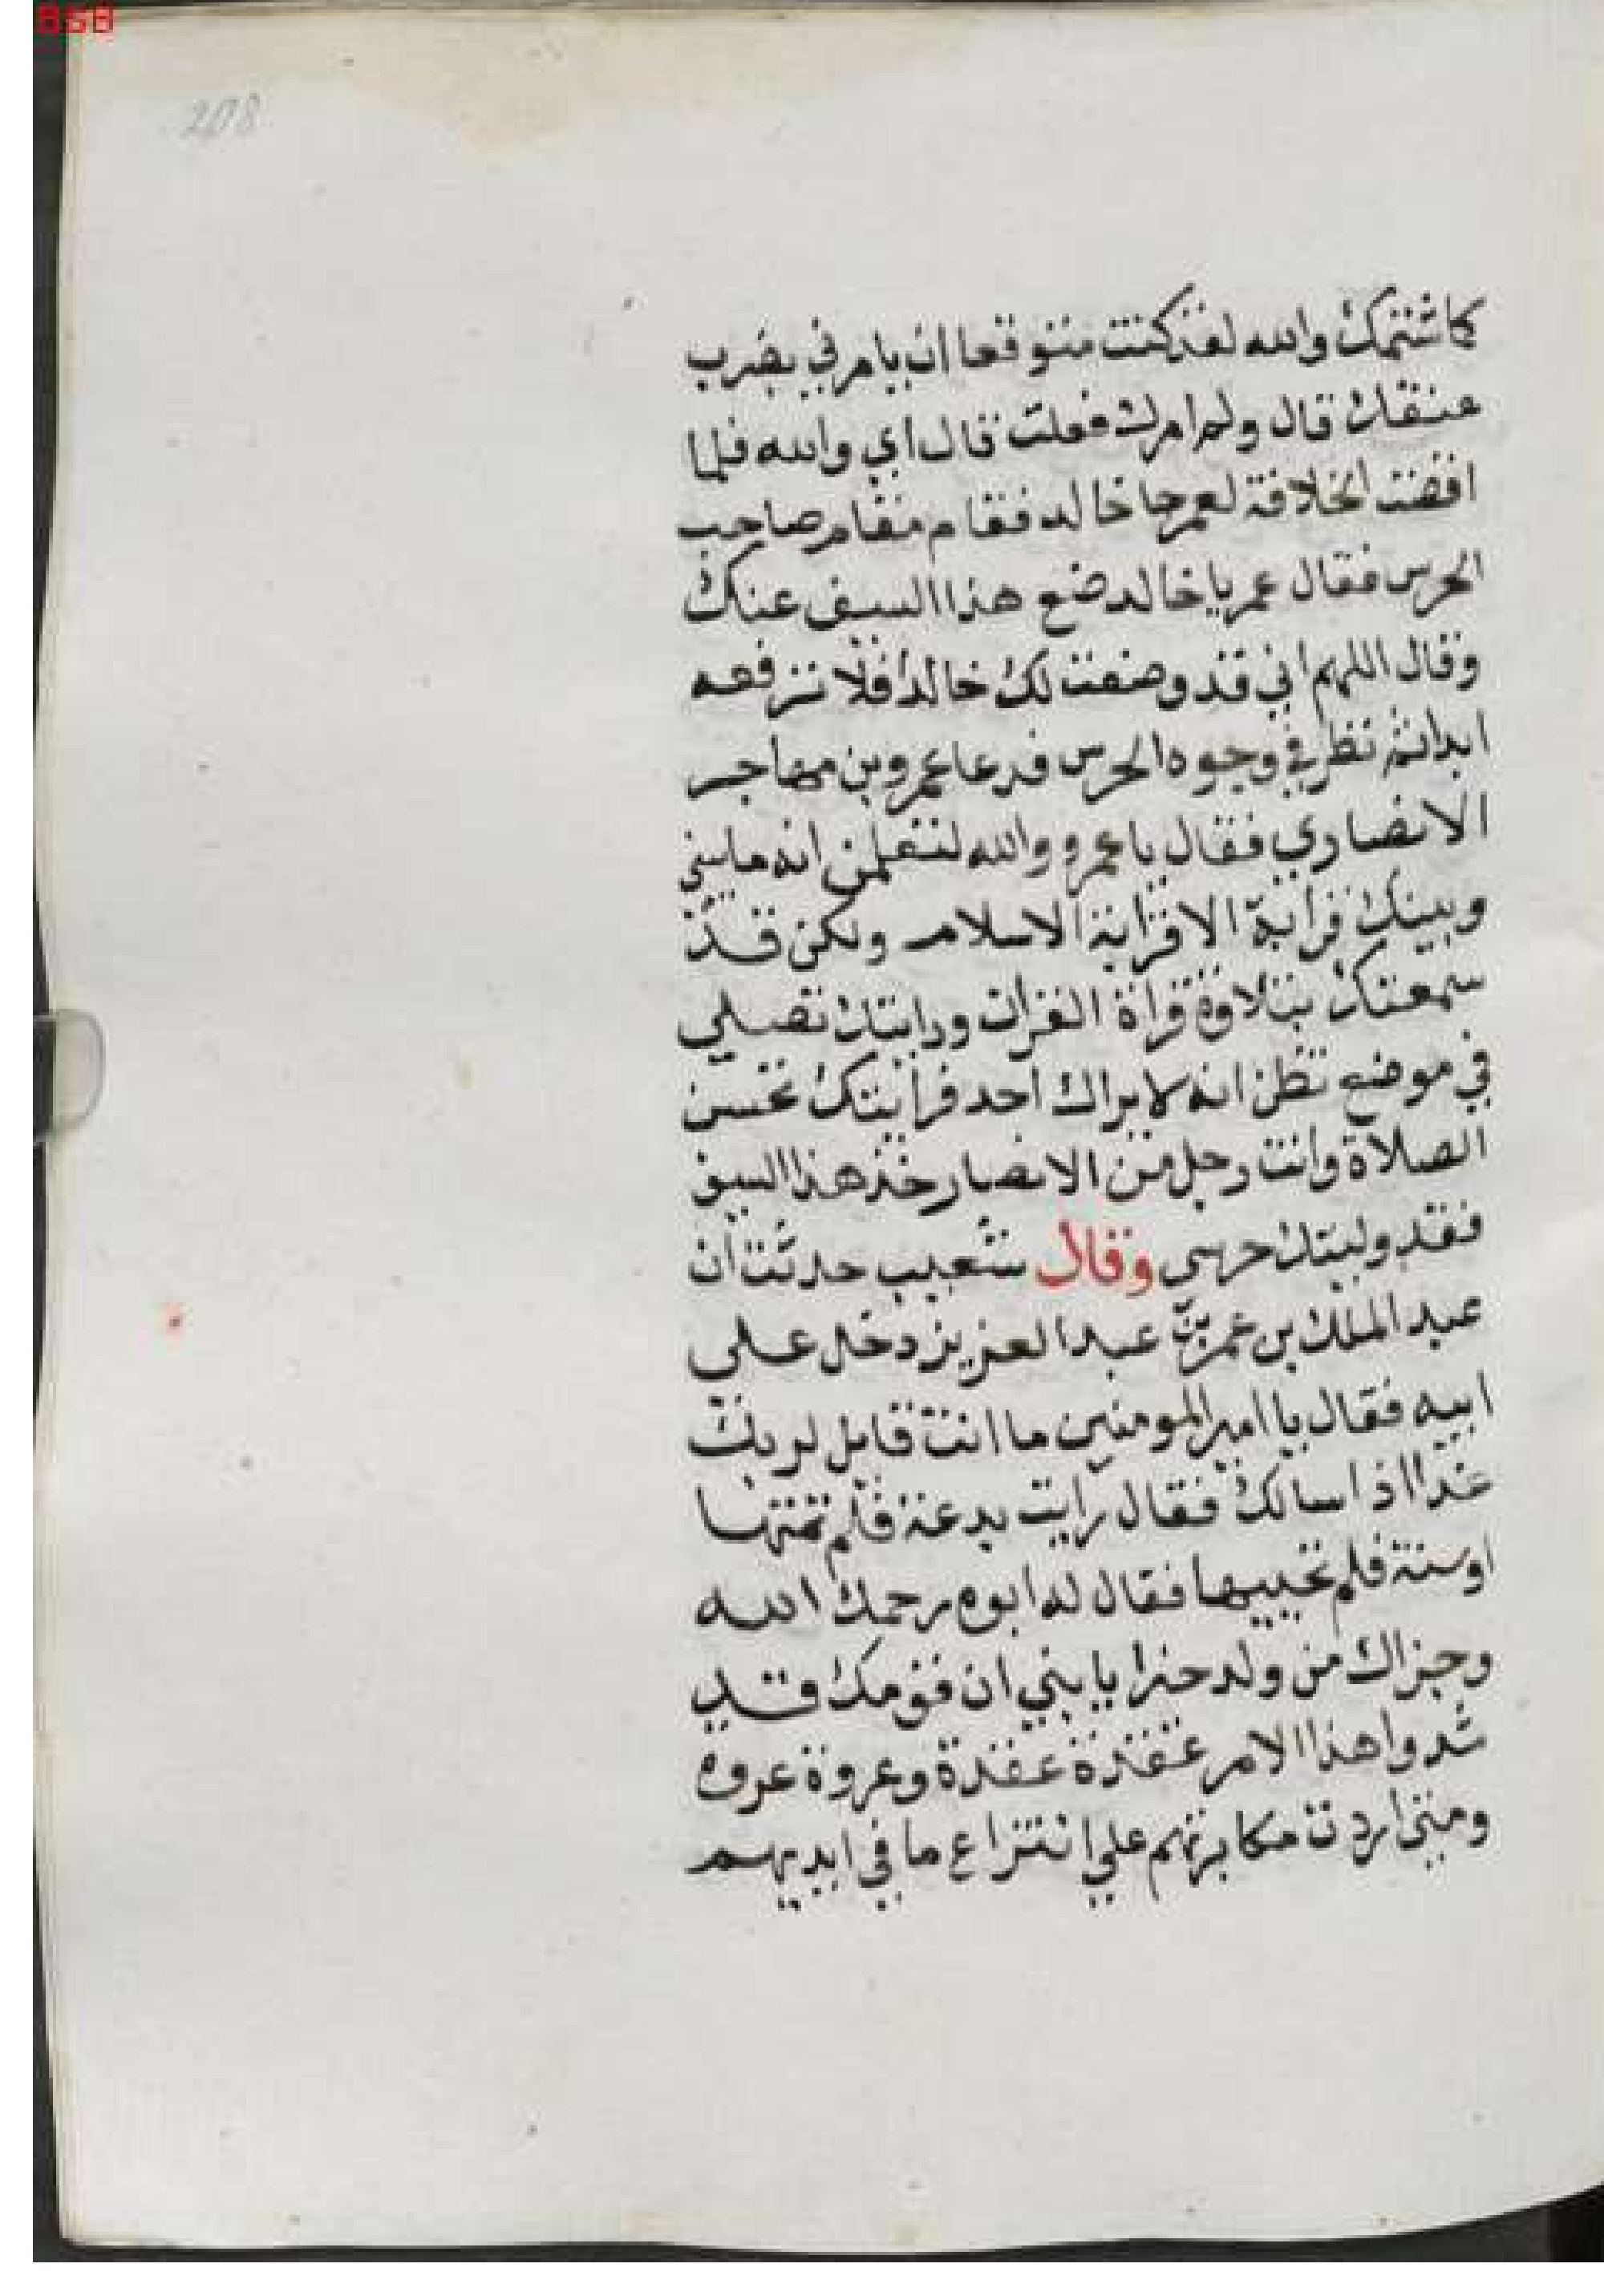 208
كما شتمك والله لقد كنت متوقعا ان يامرني بضرب
عنقك قال ولو امرك فعلت قال اي والله فلما
افضت الخلافة لعمر جا خالد فقام مقام صاحب
الحرس فقال عمر يا خالد ضع هذا السيف عنك
وقال اللهم اني قد وضعت لك خالدا فلا ترفعه
ابدا ثم نظر في وجوه الحرس فدعا عمرو بن مهاجر
الانصاري فقال يا عمرو والله لتعلمن انه ما بيني
وبينك قرابة الا قرابة الاسلام ولكن قد
سمعتك بتلاوة قراة القران ورايتك تصلي
في موضع تظن انه لا يراك احد فرايتك تحسن
الصلاة وانت رجل من الانصار خذ هذا السيف
فقد وليتك حرسي وقال شعيب حدثت ان
عبد الملك بن عمر بن عبد العزيز دخل علي
ابيه فقال يا امير المومنين ما انت قايل لربك
غدا اذا سالك فقال رايت بدعة فلم تمتها
او سنة فلم تحييها فقال له ابوه رحمك الله
وجزاك من ولد خيرا يا بني ان قومك قد
شدوا هذا الامر عقدة عقدة وعروة عروة
ومتي اردت مكابرتهم علي انتزاع ما في ايديهم